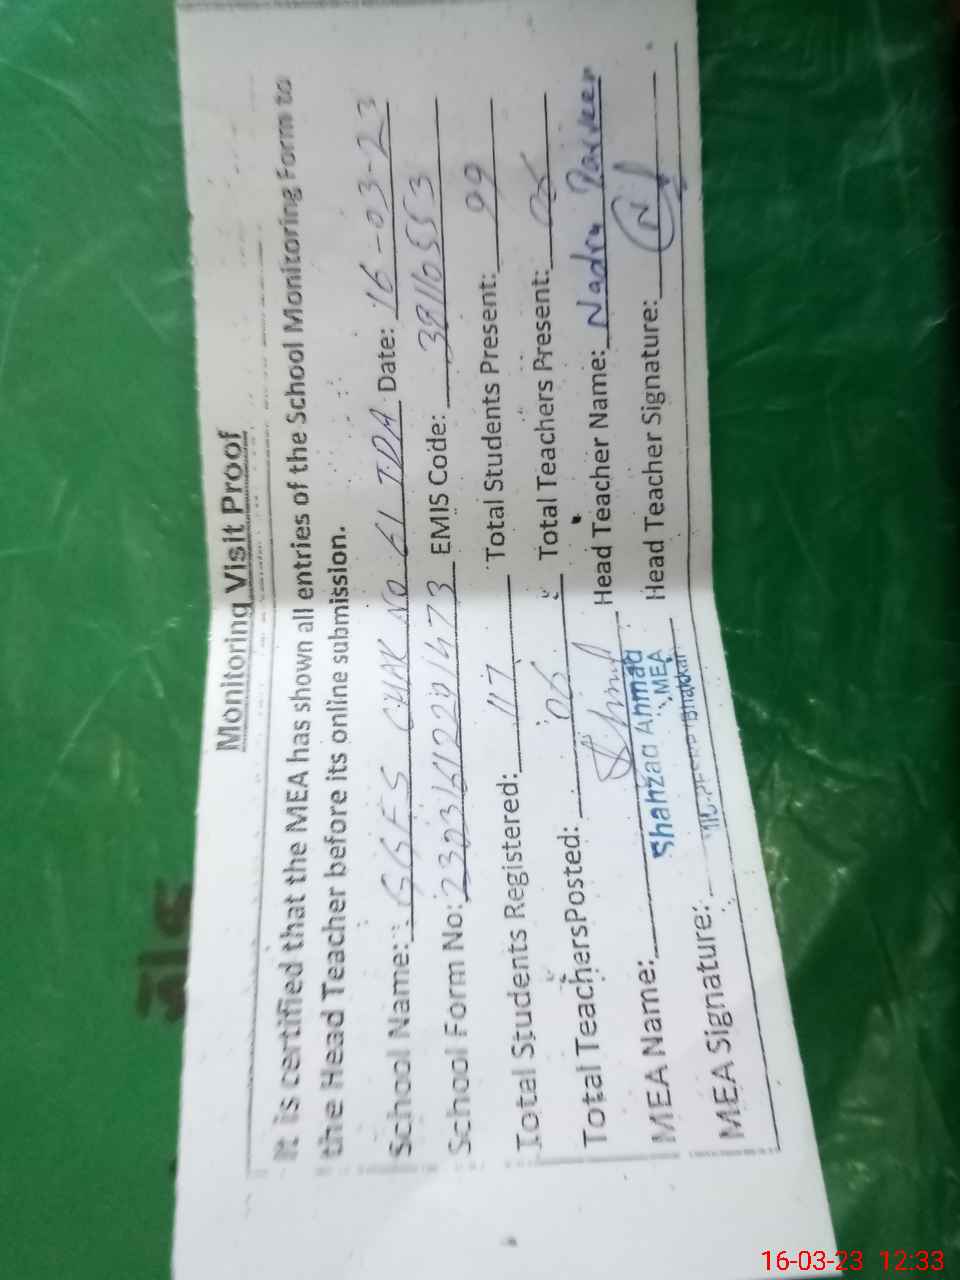 Monitoring Visit Proof
It is certified that the MEA has shown all entries of the School Monitoring Form to
the Head Teacher before its online submission.
School Name: GGES CHAK NO 61 TDA Date: 16-03-23
School Form No: EMIS Code:
Total Students Registered: 117 Total Students Present: 99
Total Teachers Posted: 06 Total Teachers Present:
MEA Name: Shahzad Ahmad Head Teacher Name: Nadra Parveen
MEA
MEA Signature: Bhakkar Head Teacher Signature:
16-03-23 12:33